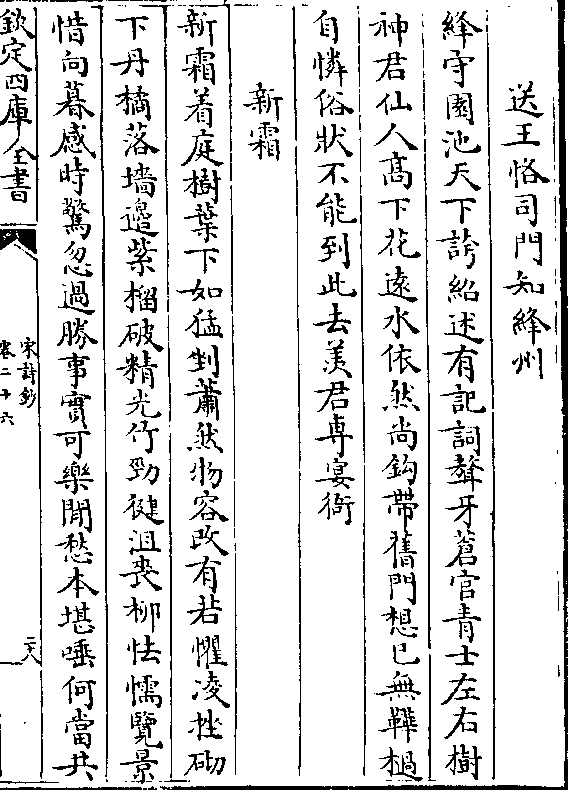 送王恪司門知絳州
絳守園池天下誇紹述有記詞聱牙蒼官青士左右樹
神君仙人髙下花遠水依然尚鈎帶舊門想已無鞾檛
自憐俗狀不能到此去羡君専宴衙
新霜
新霜着庭樹葉下如猛剉蕭然物容改有若懼凌挫砌
下丹橘落墻邉紫榴破精光竹勁健沮喪柳怯懦覽景
惜向暮感時驚忽過勝事實可樂閒愁本堪唾何當共
欽定四庫全書
宋詩鈔
卷二十六